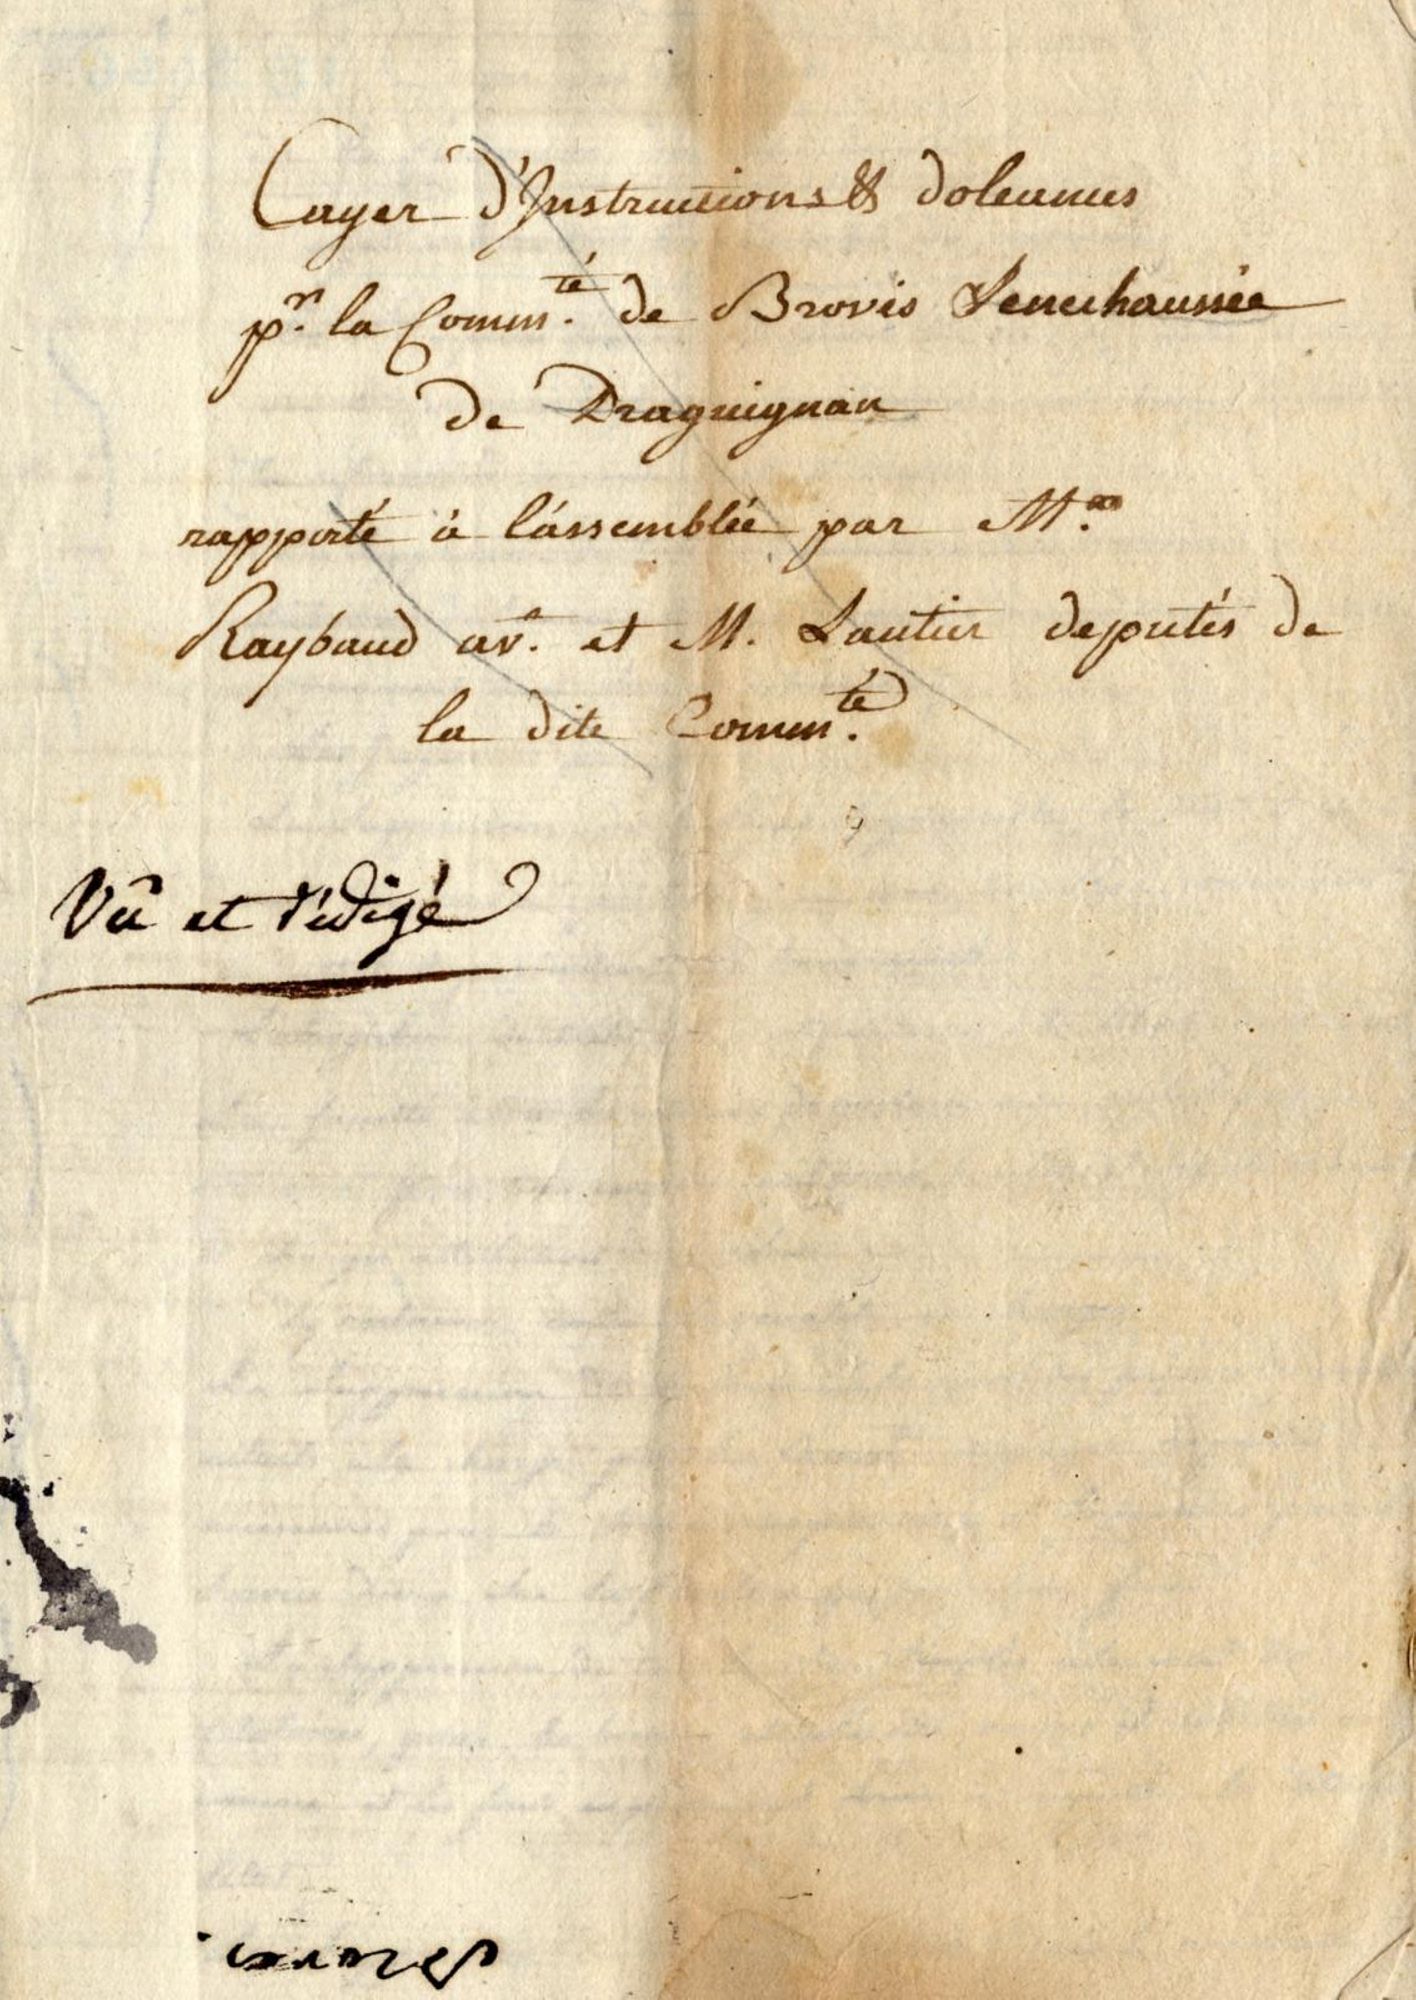 Cayer d'Instructions & doleances
pr. la Commté. de Brovis Senechaussée
de Draguignan
rapporté à l'assemblée par Me.
Raybaud avt. et M. Lautier deputés de
la dite Commté.
Vû et rédigé